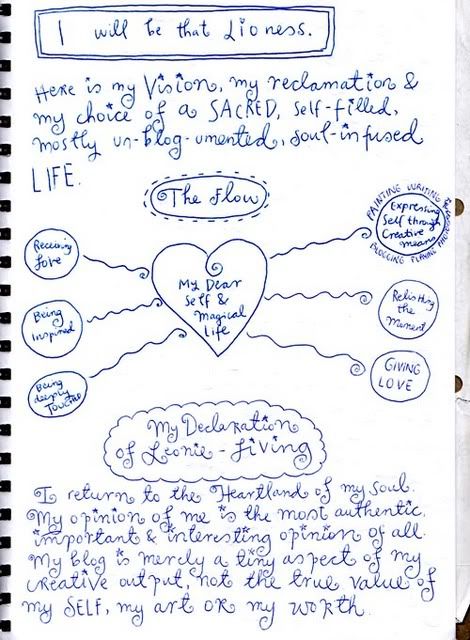 I will be that Lioness.
Here is my Vision, my reclamation &
my choice of a SACRED, self-filled,
mostly un-blog-umented, soul-infused
LIFE.
The Flow
Receiving
Love
Being
Inspired
Being
deeply
Touched
My Dear
Self &
Magical
Life
PAINTING WRITING
Expressing
Self through
Creative
means
BLOGGING PLAYING
Relishing
the
Moment
GIVING
LOVE
My Declaration
of Leonie-Living
I return to the Heartland of my soul.
My opinion of me is the most authentic,
important & interesting opinion of all.
My blog is merely a tiny aspect of my
creative output, not the true value of
my SELF, my art or my worth.